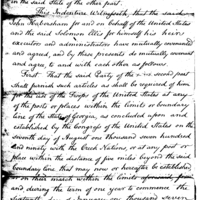 in the said State of the other part.
This Indenture Witnesseth, that the said
John Habersham for and on behalf of the United States
and the said Solomon Ellis for himself his heirs
executors and administrators have mutually covenanted
and agreed, and by these presents do mutually covenant
and agree, to and with each other as follows.
First That the said Party of the second part
shall furnish such articles as shall be required of him
for the use of the Troops of the United States at any
of the posts or places within the limits or boundary
line of the State of Georgia, as concluded upon and
established by the Congress of the United States on the
seventh day of August one thousand seven hundred
And ninety with the Creek Nations, or at any post or
place within the distance of five miles beyond the said
boundary line that may now or hereafter be established
or on their march within the limits
and during the term of one year to commence the
day of January one thousand seven